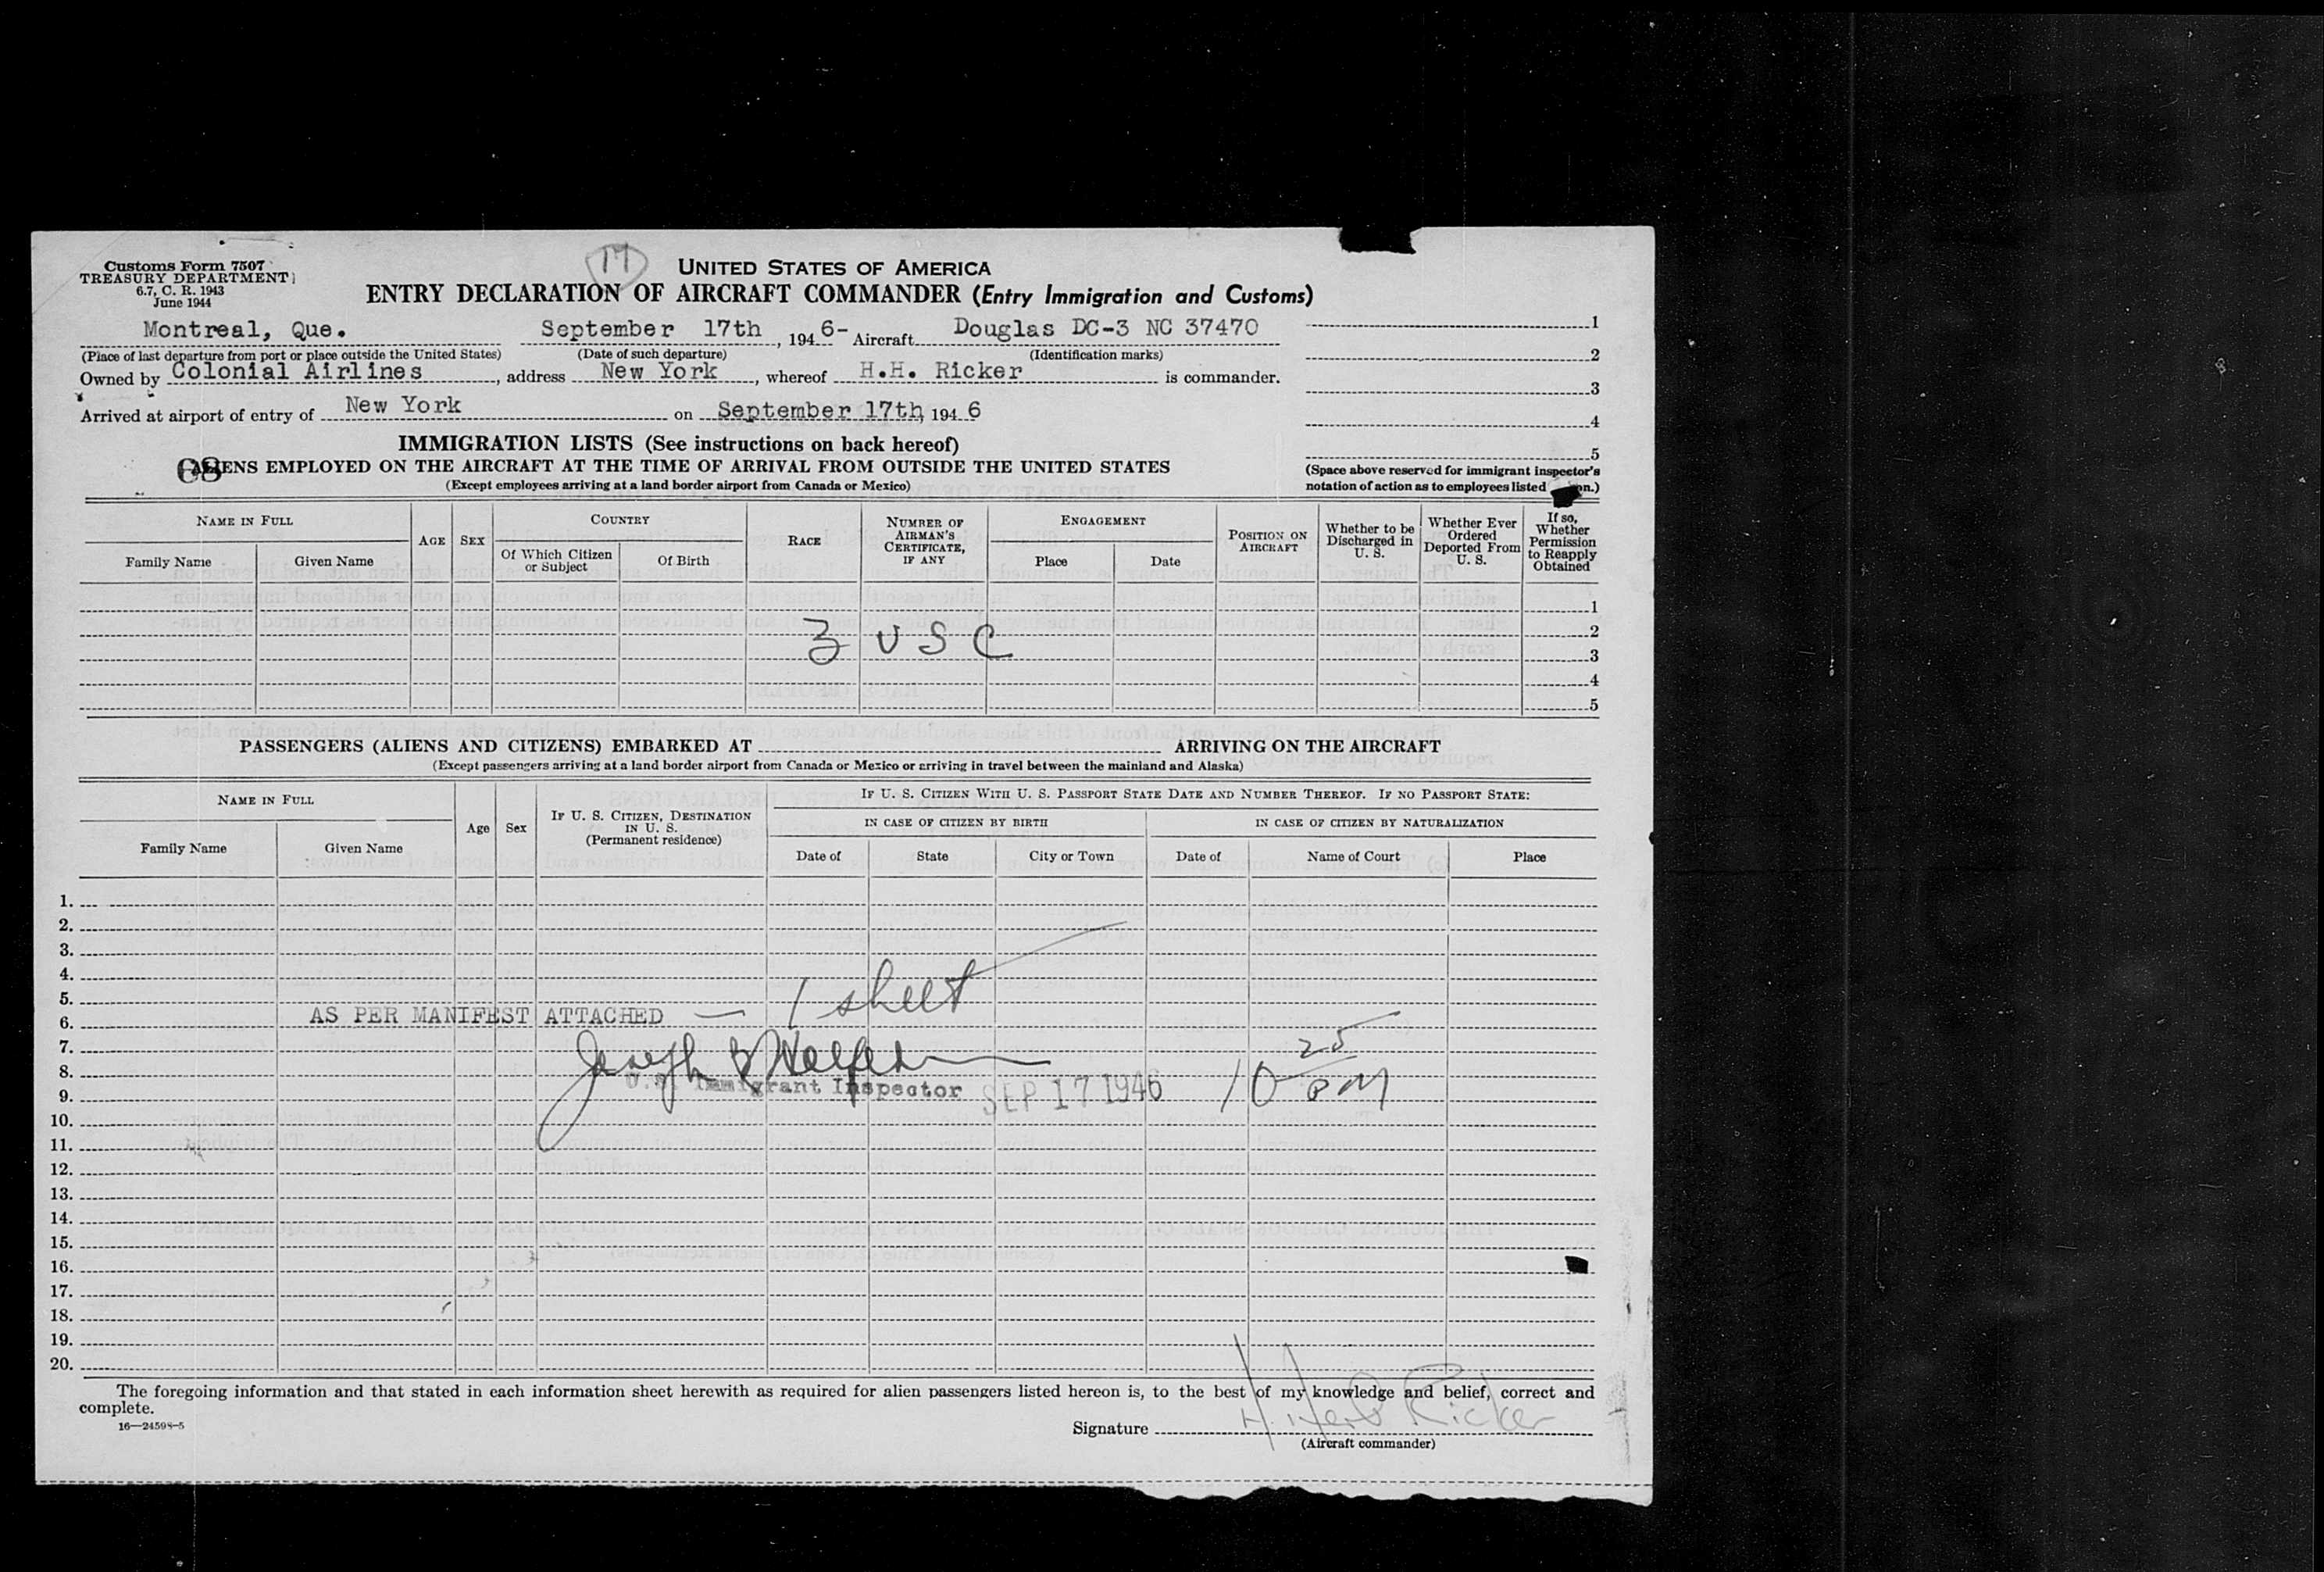 Customs Form 7507
TREASURY DEPARTMENT
6.7, C. R. 1943
June 1944
17
UNITED STATES OF AMERICA
ENTRY DECLARATION OF AIRCRAFT COMMANDER (Entry Immigration and Customs)
Montreal, Que. September 17th, 1946- Aircraft Douglas DC-3 NC 37470
(Place of last departure from port or place outside the United States) (Date of such departure) (Identification marks)
Owned by Colonial Airlines, address New York, whereof H.H. Ricker is commander.
Arrived at airport of entry of New York on September 17th, 1946
1
2
3
4
5
(Space above reserved for immigrant inspector's
notation of action as to employees listed
IMMIGRATION LISTS (See instructions on back hereof)
68
ALIENS EMPLOYED ON THE AIRCRAFT AT THE TIME OF ARRIVAL FROM OUTSIDE THE UNITED STATES
(Except employees arriving at a land border airport from Canada or Mexico)
NAME IN FULL
Family Name Given Name
AGE SEX
COUNTRY
Of Which Citizen or Subject Of Birth
RACE
NUMBER OF AIRMAN'S CERTIFICATE, IF ANY
ENGAGEMENT
Place Date
POSITION ON AIRCRAFT
Whether to be Discharged in U. S.
Whether Ever Ordered Deported From U. S.
If so, Whether Permission to Reapply Obtained
1
2
3 USC
3
4
5
PASSENGERS (ALIENS AND CITIZENS) EMBARKED AT ARRIVING ON THE AIRCRAFT
(Except passengers arriving at a land border airport from Canada or Mexico or arriving in travel between the mainland and Alaska)
NAME IN FULL
Family Name Given Name
Age Sex
IF U. S. CITIZEN, DESTINATION IN U. S. (Permanent residence)
IF U. S. CITIZEN WITH U. S. PASSPORT STATE DATE AND NUMBER THEREOF. IF NO PASSPORT STATE:
IN CASE OF CITIZEN BY BIRTH IN CASE OF CITIZEN BY NATURALIZATION
Date of State City or Town Date of Name of Court Place
1.
2.
3.
4.
5.
6.
AS PER MANIFEST ATTACHED — 1 sheet
7.
8.
Joseph B
U.S. Immigrant Inspector SEP 17 1946 10 25 PM
9.
10.
11.
12.
13.
14.
15.
16.
17.
18.
19.
20.
The foregoing information and that stated in each information sheet herewith as required for alien passengers listed hereon is, to the best of my knowledge and belief, correct and
complete.
16—24598-5
Signature H. Herb Ricker
(Aircraft commander)